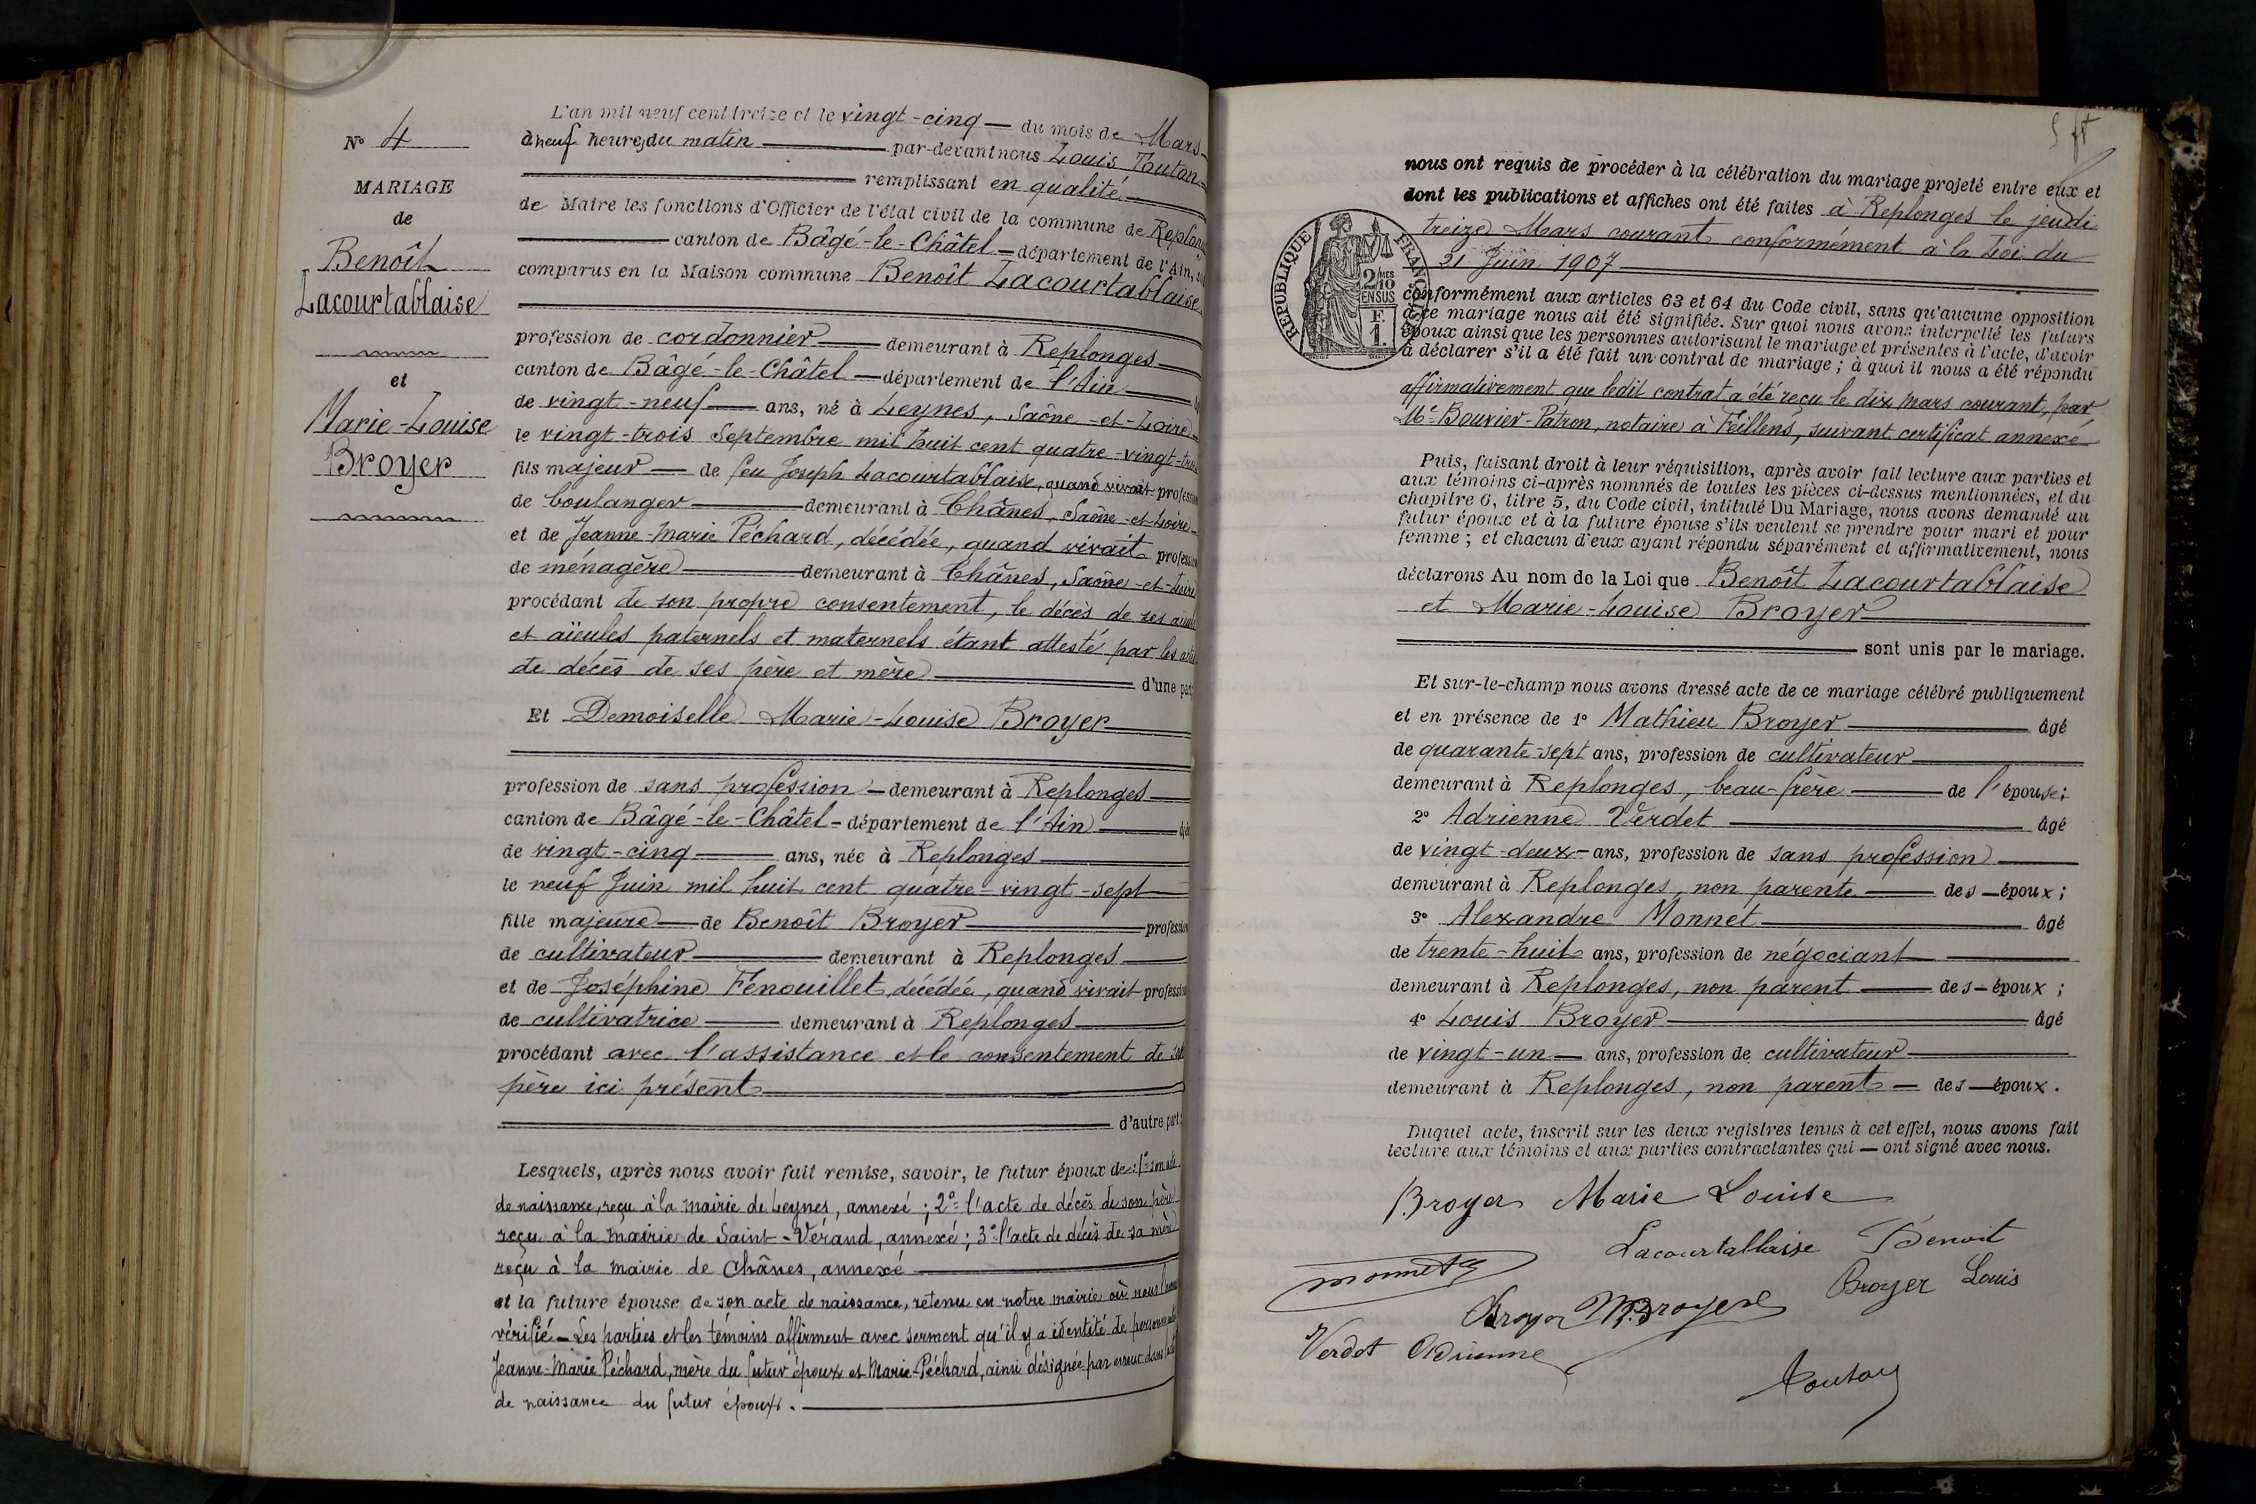 N° 4
MARIAGE
de
Benoît
Lacourtablaise
et
Marie-Louise
Broyer
L'an mil neuf cent treize et le vingt-cinq du mois de Mars
à neuf heures du matin par-devant nous Louis Touton
remplissant en qualité
de Maire les fonctions d'Officier de l'état civil de la commune de Replonges
canton de Bâgé-le-Châtel département de l'Ain,
comparus en la Maison commune Benoît Lacourtablaise
profession de cordonnier demeurant à Replonges
canton de Bâgé-le-Châtel département de l'Ain
de vingt-neuf ans, né à Leynes, Saône-et-Loire
le vingt-trois Septembre mil huit cent quatre-vingt-trois
fils majeur de feu Joseph Lacourtablaise, quand vivait profession
de boulanger demeurant à Chânes, Saône-et-Loire
et de Jeanne-Marie Péchard, décédée, quand vivait profession
de ménagère demeurant à Chânes, Saône-et-Loire
procédant de son propre consentement, le décès de ses aïeuls
et aïeules paternels et maternels étant attesté par les actes
de décès de ses père et mère d'une part;
Et Demoiselle Marie-Louise Broyer
profession de sans profession demeurant à Replonges
canton de Bâgé-le-Châtel département de l'Ain âgée
de vingt-cinq ans, née à Replonges
le neuf Juin mil huit cent quatre-vingt-sept
fille majeure de Benoît Broyer profession
de cultivateur demeurant à Replonges
et de Joséphine Fénouillet, décédée, quand vivait profession
de cultivatrice demeurant à Replonges
procédant avec l'assistance et le consentement de son
père ici présent
d'autre part :
Lesquels, après nous avoir fait remise, savoir, le futur époux de : 1° son acte
de naissance, reçu à la mairie de Leynes, annexé ; 2° l'acte de décès de son père
reçu à la mairie de Saint-Vérand, annexé ; 3° l'acte de décès de sa mère
reçu à la mairie de Chânes, annexé
et la future épouse de son acte de naissance, retenu en notre mairie où nous l'avons
vérifié - Les parties et les témoins affirment avec serment qu'il y a identité de personne entre
Jeanne-Marie Péchard, mère du futur époux et Marie Péchard, ainsi désignée par erreur dans l'acte
de naissance du futur époux.
nous ont requis de procéder à la célébration du mariage projeté entre eux et
dont les publications et affiches ont été faites à Replonges le jeudi
treize Mars courant conformément à la Loi du
21 Juin 1907
RÉPUBLIQUE FRANÇAISE
2/10 MES
EN SUS
F.
1.
conformément aux articles 63 et 64 du Code civil, sans qu'aucune opposition
à ce mariage nous ait été signifiée. Sur quoi nous avons interpellé les futurs
époux ainsi que les personnes autorisant le mariage et présentes à l'acte, d'avoir
à déclarer s'il a été fait un contrat de mariage ; à quoi il nous a été répondu
affirmativement que ledit contrat a été reçu le dix mars courant, par
Me Bouvier-Patron, notaire à Feillens, suivant certificat annexé
Puis, faisant droit à leur réquisition, après avoir fait lecture aux parties et
aux témoins ci-après nommés de toutes les pièces ci-dessus mentionnées, et du
chapitre 6, titre 5, du Code civil, intitulé Du Mariage, nous avons demandé au
futur époux et à la future épouse s'ils veulent se prendre pour mari et pour
femme ; et chacun d'eux ayant répondu séparément et affirmativement, nous
déclarons Au nom de la Loi que Benoît Lacourtablaise
et Marie-Louise Broyer
sont unis par le mariage.
Et sur-le-champ nous avons dressé acte de ce mariage célébré publiquement
et en présence de 1° Mathieu Broyer âgé
de quarante-sept ans, profession de cultivateur
demeurant à Replonges, beau-frère de l'épouse;
2° Adrienne Verdet âgé
de vingt-deux ans, profession de sans profession
demeurant à Replonges, non parente des époux ;
3° Alexandre Monnet âgé
de trente-huit ans, profession de négociant
demeurant à Replonges, non parent des époux ;
4° Louis Broyer âgé
de vingt-un ans, profession de cultivateur
demeurant à Replonges, non parent des époux.
Duquel acte, inscrit sur les deux registres tenus à cet effet, nous avons fait
lecture aux témoins et aux parties contractantes qui ont signé avec nous.
Broyer Marie Louise
Lacourtablaise Benoit
Monnet
Broyer Louis
Broyer M. Broyer
Verdet Adrienne
Touton